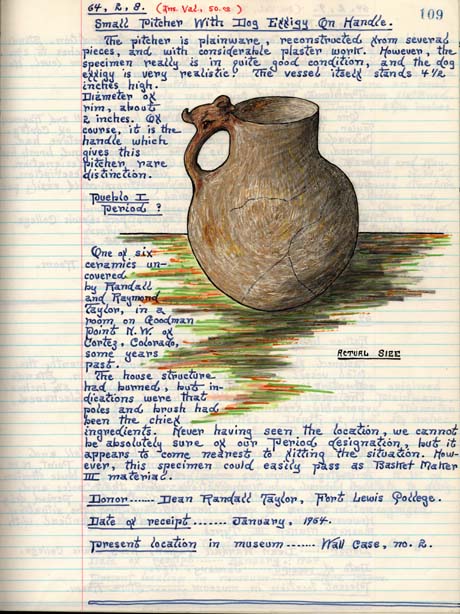 64, 2, 8. (Ins. Val. 50.00)
109
Small Pitcher With Dog Effigy On Handle.
The pitcher is plainware, reconstructed from several
pieces, and with considerable plaster work. However, the
specimen really is in quite good condition, and the dog
effigy is very realistic! The vessel itself stands 4 1/2
inches high.
Diameter of
rim, about
2 inches. Of
course, it is the
handle which
gives this
pitcher rare
distinction.
Pueblo I
Period ?
One of six
ceramics un-
covered
by Randall
and Raymond
Taylor, in a
room on Goodman
Point N.W. of
Cortez, Colorado,
some years
past.
ACTUAL SIZE
The house structure
had burned, but in-
dications were that
poles and brush had
been the chief
ingredients. Never having seen the location, we cannot
be absolutely sure of our Period designation, but it
appears to come nearest to fitting the situation. How-
ever, this specimen could easily pass as Basket Maker
III material.
Donor ....... Dean Randall Taylor, Fort Lewis College.
Date of receipt ....... January, 1964.
Present location in museum ....... Wall Case, no. 2.